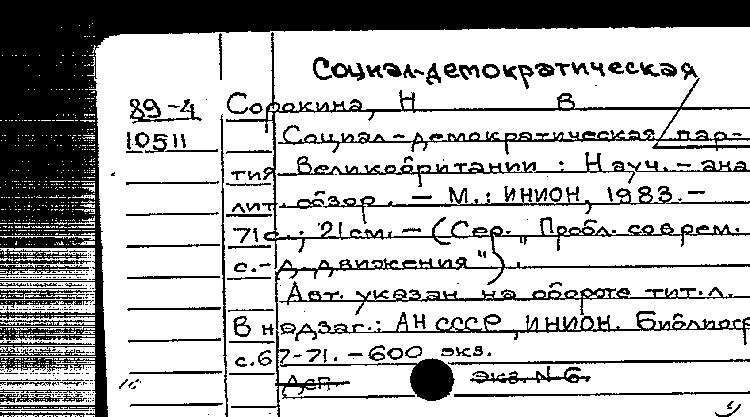 Социал-демократическая
89-4 Сорокина, Н В
10511 Социал-демократическая пар-
тия Великобритании : Науч.-ана
лит. обзор. — М.: ИНИОН, 1983.—
71с.; 21см. — (Сер. "Пробл. соврем.
с.-д. движения").
Авт. указан на обороте тит.л.
В надзаг.: АН СССР, ИНИОН. Библиогр
с.67-71. — 600 экз.
Деп. Экз. N 6.